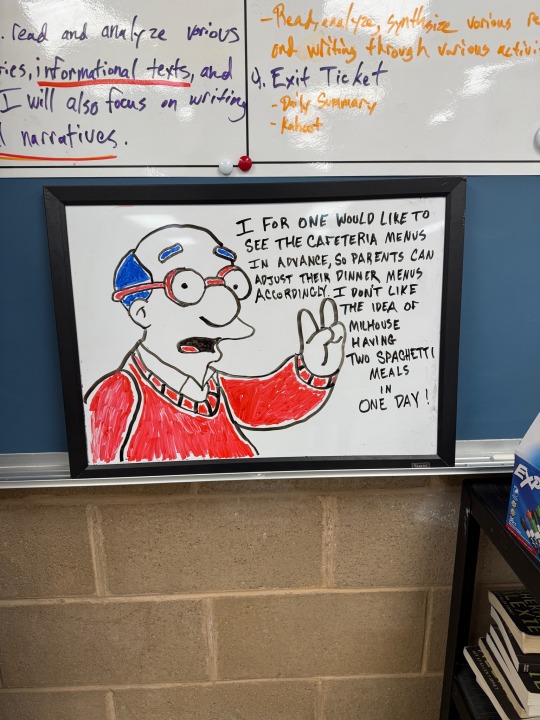 . read and analyze various
ies, informational texts, and
I will also focus on writing
narratives.
- Read, analyze, synthesize various re
and writing through various activi
4. Exit Ticket
- Daily Summary
- Kahoot
I FOR ONE WOULD LIKE TO
SEE THE CAFETERIA MENUS
IN ADVANCE, SO PARENTS CAN
ADJUST THEIR DINNER MENUS
ACCORDINGLY. I DON'T LIKE
THE IDEA OF
MILHOUSE
HAVING
TWO SPAGHETTI
MEALS
IN
ONE DAY!
EXP